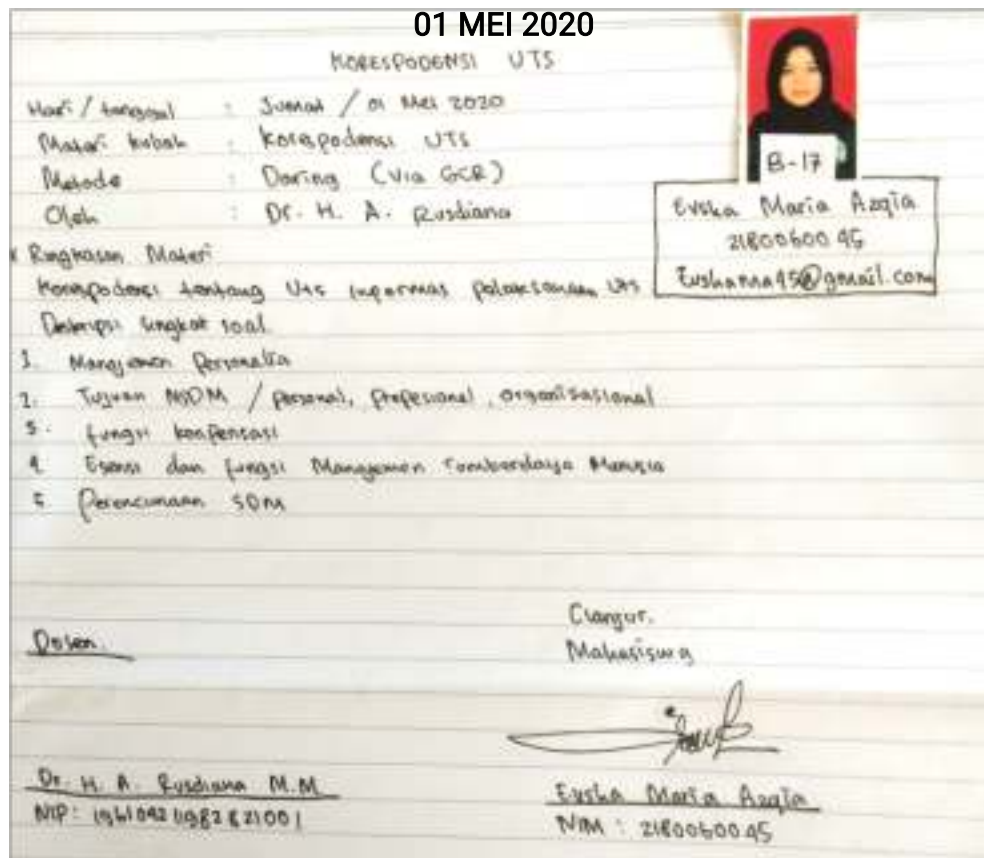 01 MEI 2020
KORESPODENSI UTS
Hari / tanggal : Jumat / 01 Mei 2020
Materi kuliah : Korespodensi UTS
Metode : Daring (Via GCR)
Oleh : Dr. H. A. Rusdiana
B-17
Evska Maria Azqia
2180060045
Evskanna95@gmail.com
Ringkasan Materi
Korespodensi tentang Uts informas pelaksanaan Uts
Deskripsi singkat soal.
1. Manajemen Personalia
2. Tujuan MSDM / personal, profesional, organisasional
3. fungsi konpensasi
4 Esensi dan fungsi Manajemen Sumberdaya Manusia
5 Perencanaan SDM
Cianjur.
Dosen.
Mahasiswa
Dr. H. A. Rusdiana M.M
NIP:
Evska Maria Azqia
NIM : 2180060045